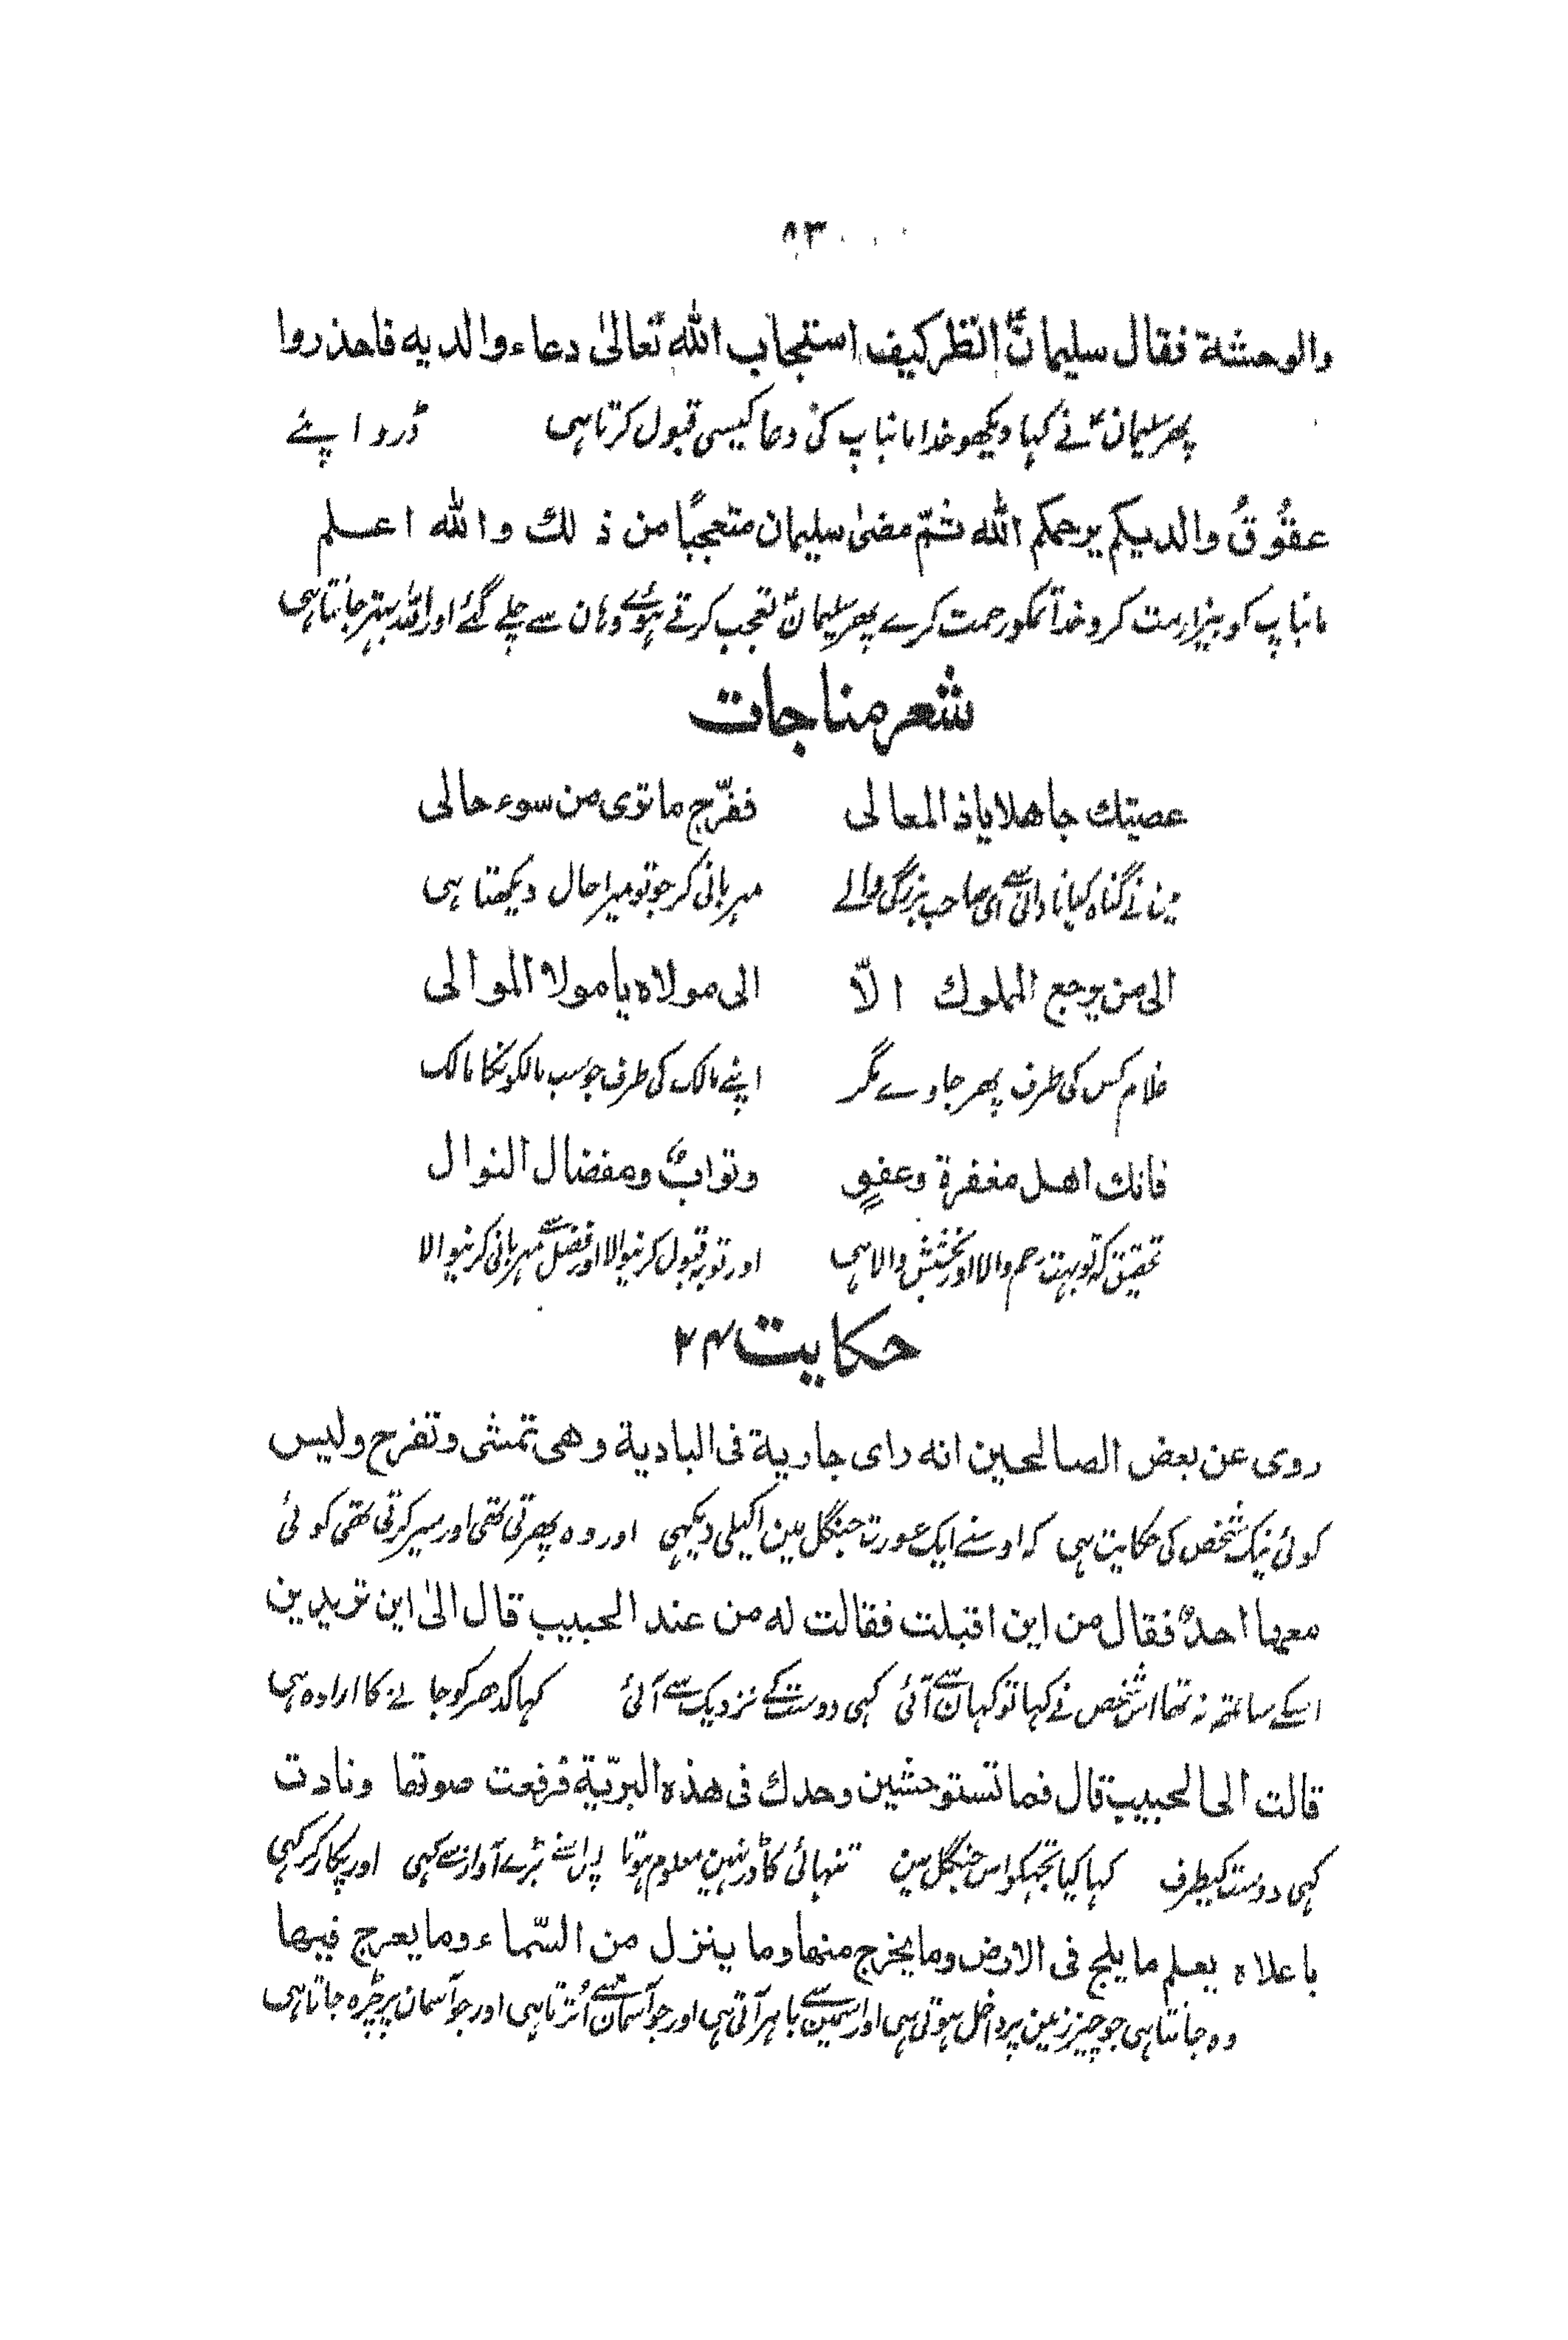 ٨٣
والوحشة فقال سليمانؑ انظر كيف استجاب الله تعالىٰ دعاء والديه فاحذروا
پھر سلیمانؑ نے کہا دیکھو خدا مانباپ کی دعا کیسی قبول کرتا ہی ڈرو اپنے
عقُوقُ والديكم يرحمكم الله ثمّ مضىٰ سليمان متعجبًا من ذلك والله اعلم
مانباپ کو بیزار مت کرو خدا تمکو رحمت کرے پھر سلیمانؑ تعجب کرتے ہوئے وہان سے چلے گئے اور اللہ بہتر جانتا ہی
شعر مناجات
عصيتك جاهلا ياذ المعالى ففرّج ماترى من سوء حالى
مینے گناہ کیا نادانی سے ای صاحب بزرگی والے مہربانی کر جو تو میرا حال دیکھتا ہی
الى من يرجع المملوك الّا الى مولاه يا مولا الموالى
غلام کس کی طرف پھر جاوے مگر اپنے مالک کی طرف جو سب مالکونکا مالک
فانك اهل مغفرة وعفوٍ وتوابٌ ومفضال النوال
تحقیق کہ تو بہت رحم والا اور بخشش والا ہی اور توبہ قبول کرنیوالا اور فضل سے مہربانی کرنیوالا
حکایت ۲۴
روى عن بعض الصالحين انه راى جارية فى البادية وهى تمشى وتفرح وليس
کوئی نیک شخص کی حکایت ہی کہ اوسنے ایک عورت جنگل مین اکیلی دیکھی اور وہ پھرتی تھی اور سیر کرتی تھی کوئی
معها احدٌ فقال من اين اقبلت فقالت له من عند الحبيب قال الىٰ اين تريدين
اسکے ساتھ نہ تھا اس شخص نے کہا تو کہان سے آئی کہی دوست کے نزدیک سے آئی کہا کدھر کو جانے کا ارادہ ہی
قالت الى الحبيب قال فما تستوحشين وحدك فى هذه البرّية فرفعت صوتها ونادت
کہی دوست کیطرف کہا کیا تجہکو اس جنگل مین تنہائی کا ڈر نہین معلوم ہوتا پس اسنے بڑے آواز سے کہی اور پکار کر کہی
باعلاه يعلم ما يلج فى الارض وما يخرج منها وما ينزل من السّماء وما يعرج فيها
وہ جانتا ہی جو چیز زمین پر داخل ہوتی ہی اور اسمین سے باہر آتی ہی اور جو آسمان سے اُترتا ہی اور جو آسمان پر چڑہ جاتا ہی